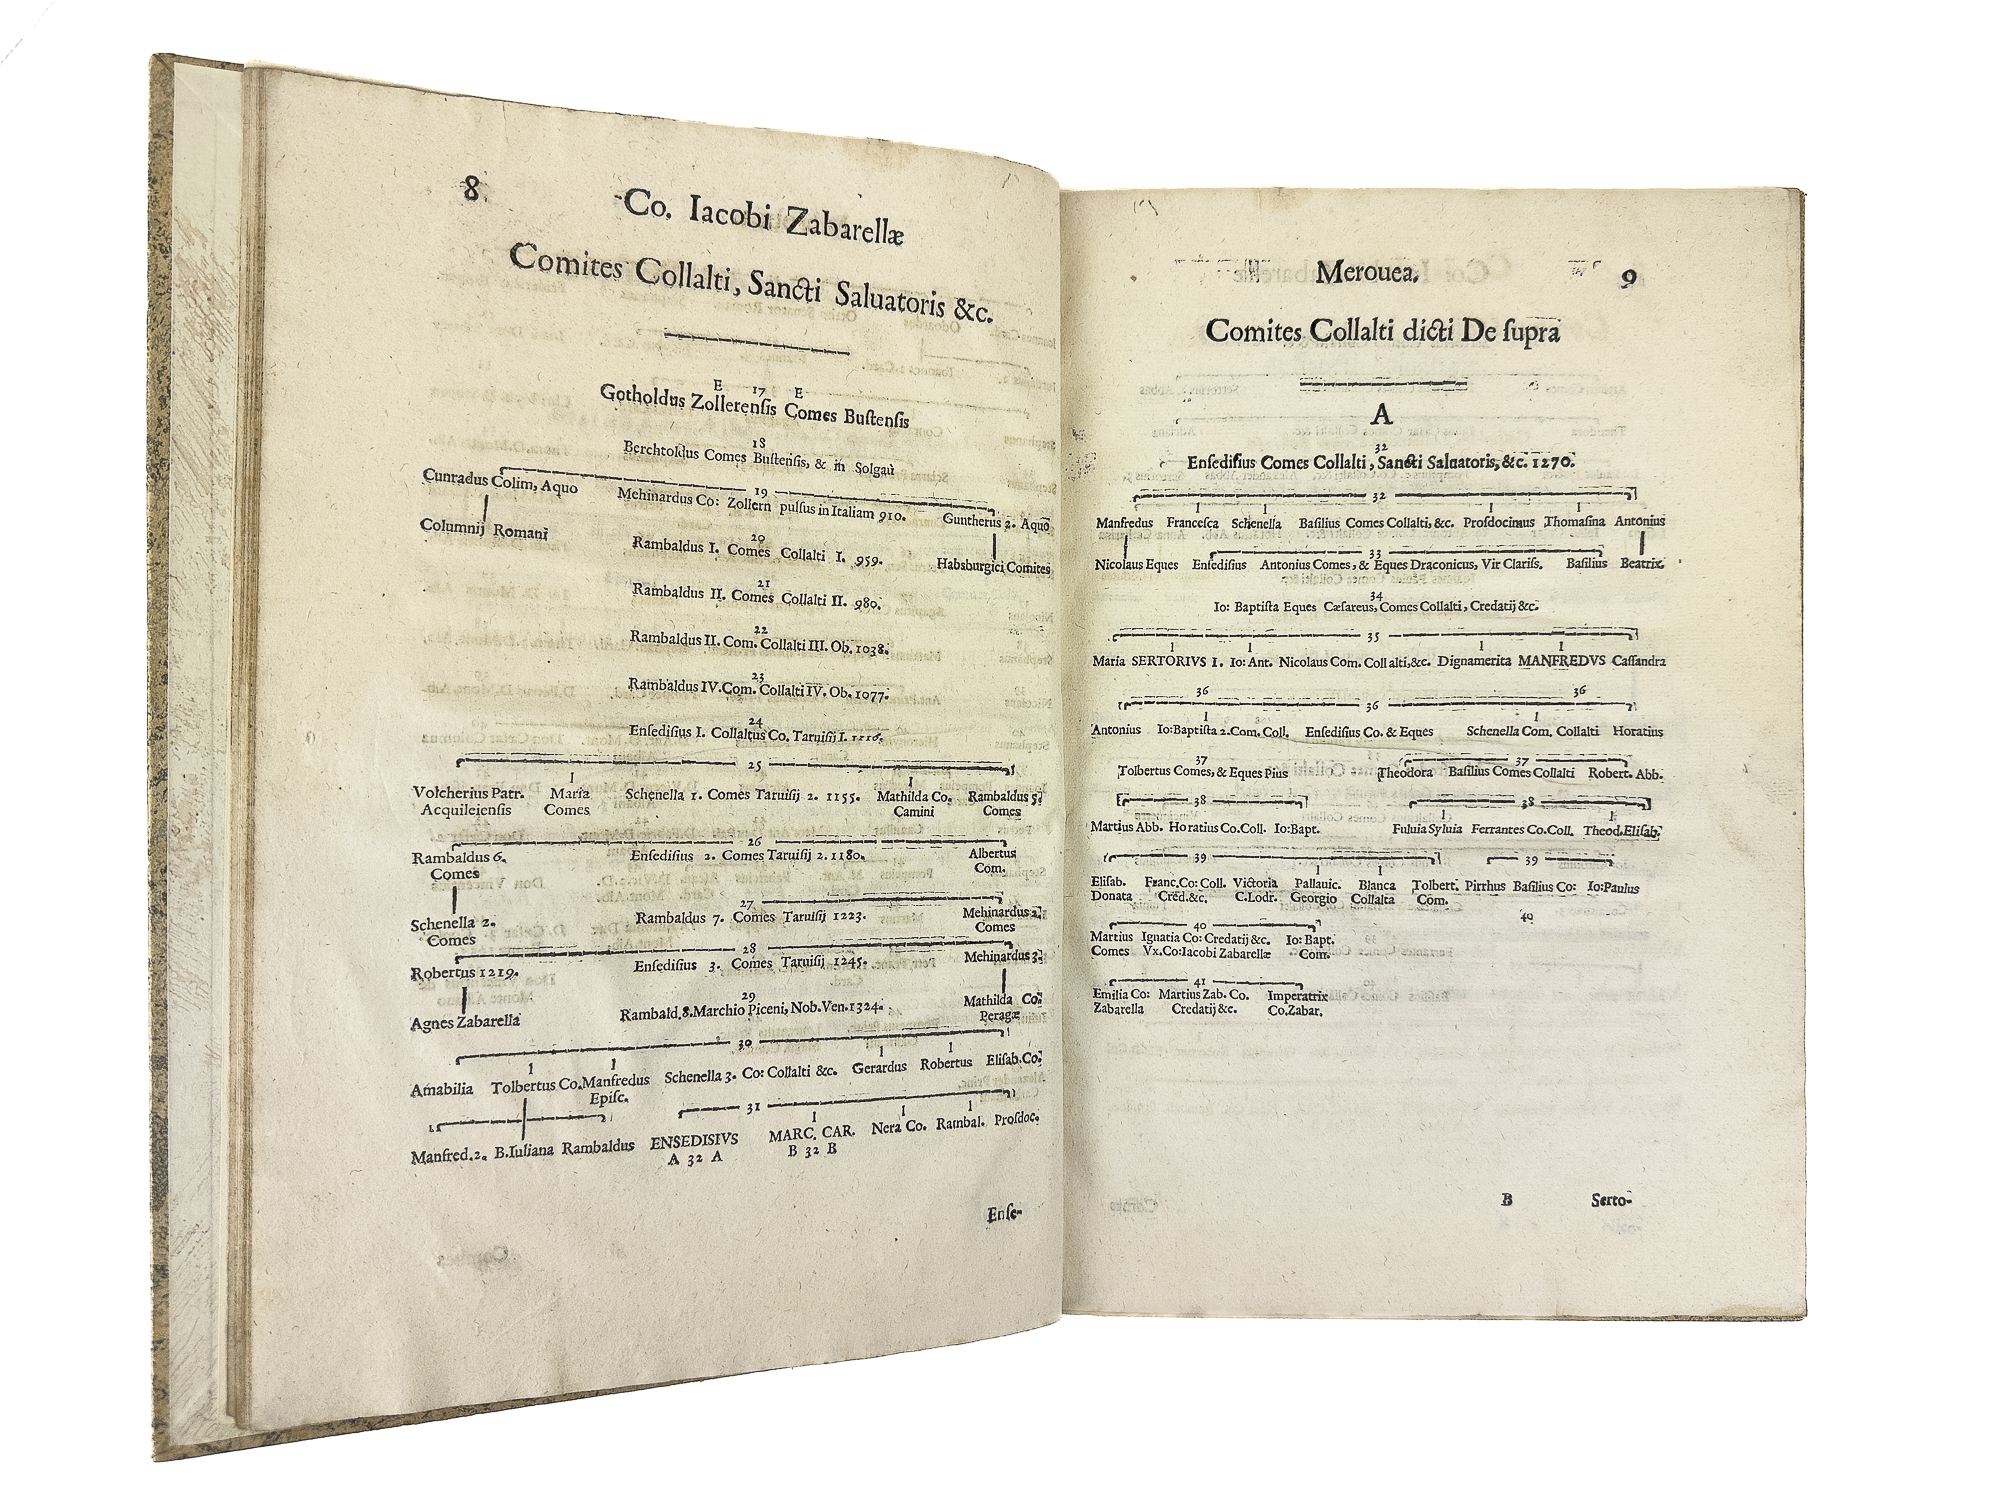 8
Co. Iacobi Zabarellæ
Comites Collalti, Sancti Saluatoris &c.
E 17 E
Gotholdus Zollerensis Comes Bustensis
18
Berchtoldus Comes Bustensis, & in Solgaù
19
Cunradus Colim, Aquo Mehinardus Co: Zollern pulsus in Italiam 910. Guntherus 2. Aquo
Columnij Romani
20
Rambaldus I. Comes Collalti I. 959. Habsburgici Comites
21
Rambaldus II. Comes Collalti II. 980.
22
Rambaldus II. Com. Collalti III. Ob. 1038.
23
Rambaldus IV. Com. Collalti IV. Ob. 1077.
24
Ensedisius I. Collaltus Co. Taruisij I. 1116.
25
Volcherius Patr. Maria Schenella 1. Comes Taruisij 2. 1155. Mathilda Co. Rambaldus 5.
Acquileiensis Comes Camini Comes
26
Rambaldus 6. Ensedisius 2. Comes Taruisij 2. 1180. Albertus
Comes Com.
27
Schenella 2. Rambaldus 7. Comes Taruisij 1223. Mehinardus 2.
Comes Comes
28
Robertus 1219. Ensedisius 3. Comes Taruisij 1245. Mehinardus 3.
29
Agnes Zabarella Rambald. 8. Marchio Piceni, Nob. Ven. 1324. Mathilda Co.
Peragæ
30
Amabilia Tolbertus Co. Manfredus Schenella 3. Co: Collalti &c. Gerardus Robertus Elisab. Co.
Episc.
31
Manfred. 2. B. Iuliana Rambaldus ENSEDISIVS MARC. CAR. Nera Co. Rambal. Prosdoc.
A 32 A B 32 B
Ense-
Merouea. 9
Comites Collalti dicti De supra
A
32
Ensedisius Comes Collalti, Sancti Saluatoris, &c. 1270.
32
Manfredus Francesca Schenella Basilius Comes Collalti, &c. Prosdocimus Thomasina Antonius
33
Nicolaus Eques Ensedisius Antonius Comes, & Eques Draconicus, Vir Clariss. Basilius Beatrix
34
Io: Baptista Eques Cæsareus, Comes Collalti, Credatij &c.
35
Maria SERTORIVS I. Io: Ant. Nicolaus Com. Collalti, &c. Dignamerita MANFREDVS Cassandra
36 36
36
Antonius Io: Baptista 2. Com. Coll. Ensedisius Co. & Eques Schenella Com. Collalti Horatius
37 37
Tolbertus Comes, & Eques Pius Theodora Basilius Comes Collalti Robert. Abb.
38 38
Martius Abb. Horatius Co. Coll. Io: Bapt. Fuluia Syluia Ferrantes Co. Coll. Theod. Elisab.
39 39
Elisab. Franc. Co: Coll. Victoria Pallauic. Blanca Tolbert. Pirrhus Basilius Co: Io: Paulus
Donata Cred. &c. C. Lodr. Georgio Collalta Com.
40
40
Martius Ignatia Co: Credatij &c. Io: Bapt.
Comes Vx. Co: Iacobi Zabarellæ Com.
41
Emilia Co: Martius Zab. Co. Imperatrix
Zabarella Credatij &c. Co. Zabar.
B Serto-